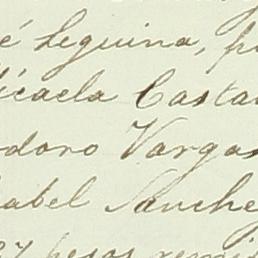 é Leguina, p
icaela Casta
doro Vargas
abel Sanche
27 pesos remi